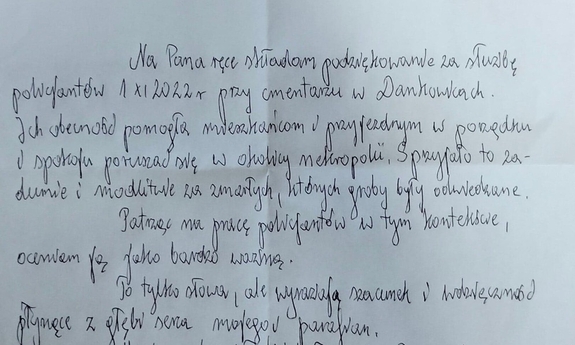 Na Pana ręce składam podziękowanie za służbę
policjantów 1 XI 2022 r przy cmentarzu w Dankowicach.
Ich obecność pomogła mieszkańcom i przyjezdnym w porządku
i spokoju poruszać się w okolicy nekropolii. Sprzyjało to za-
dumie i modlitwie za zmarłych, których groby były odwiedzane.
Patrząc na pracę policjantów w tym kontekście,
oceniam ją jako bardzo ważną.
To tylko słowa, ale wyrażają szacunek i wdzięczność
płynące z głębi serca mojego i parafian.